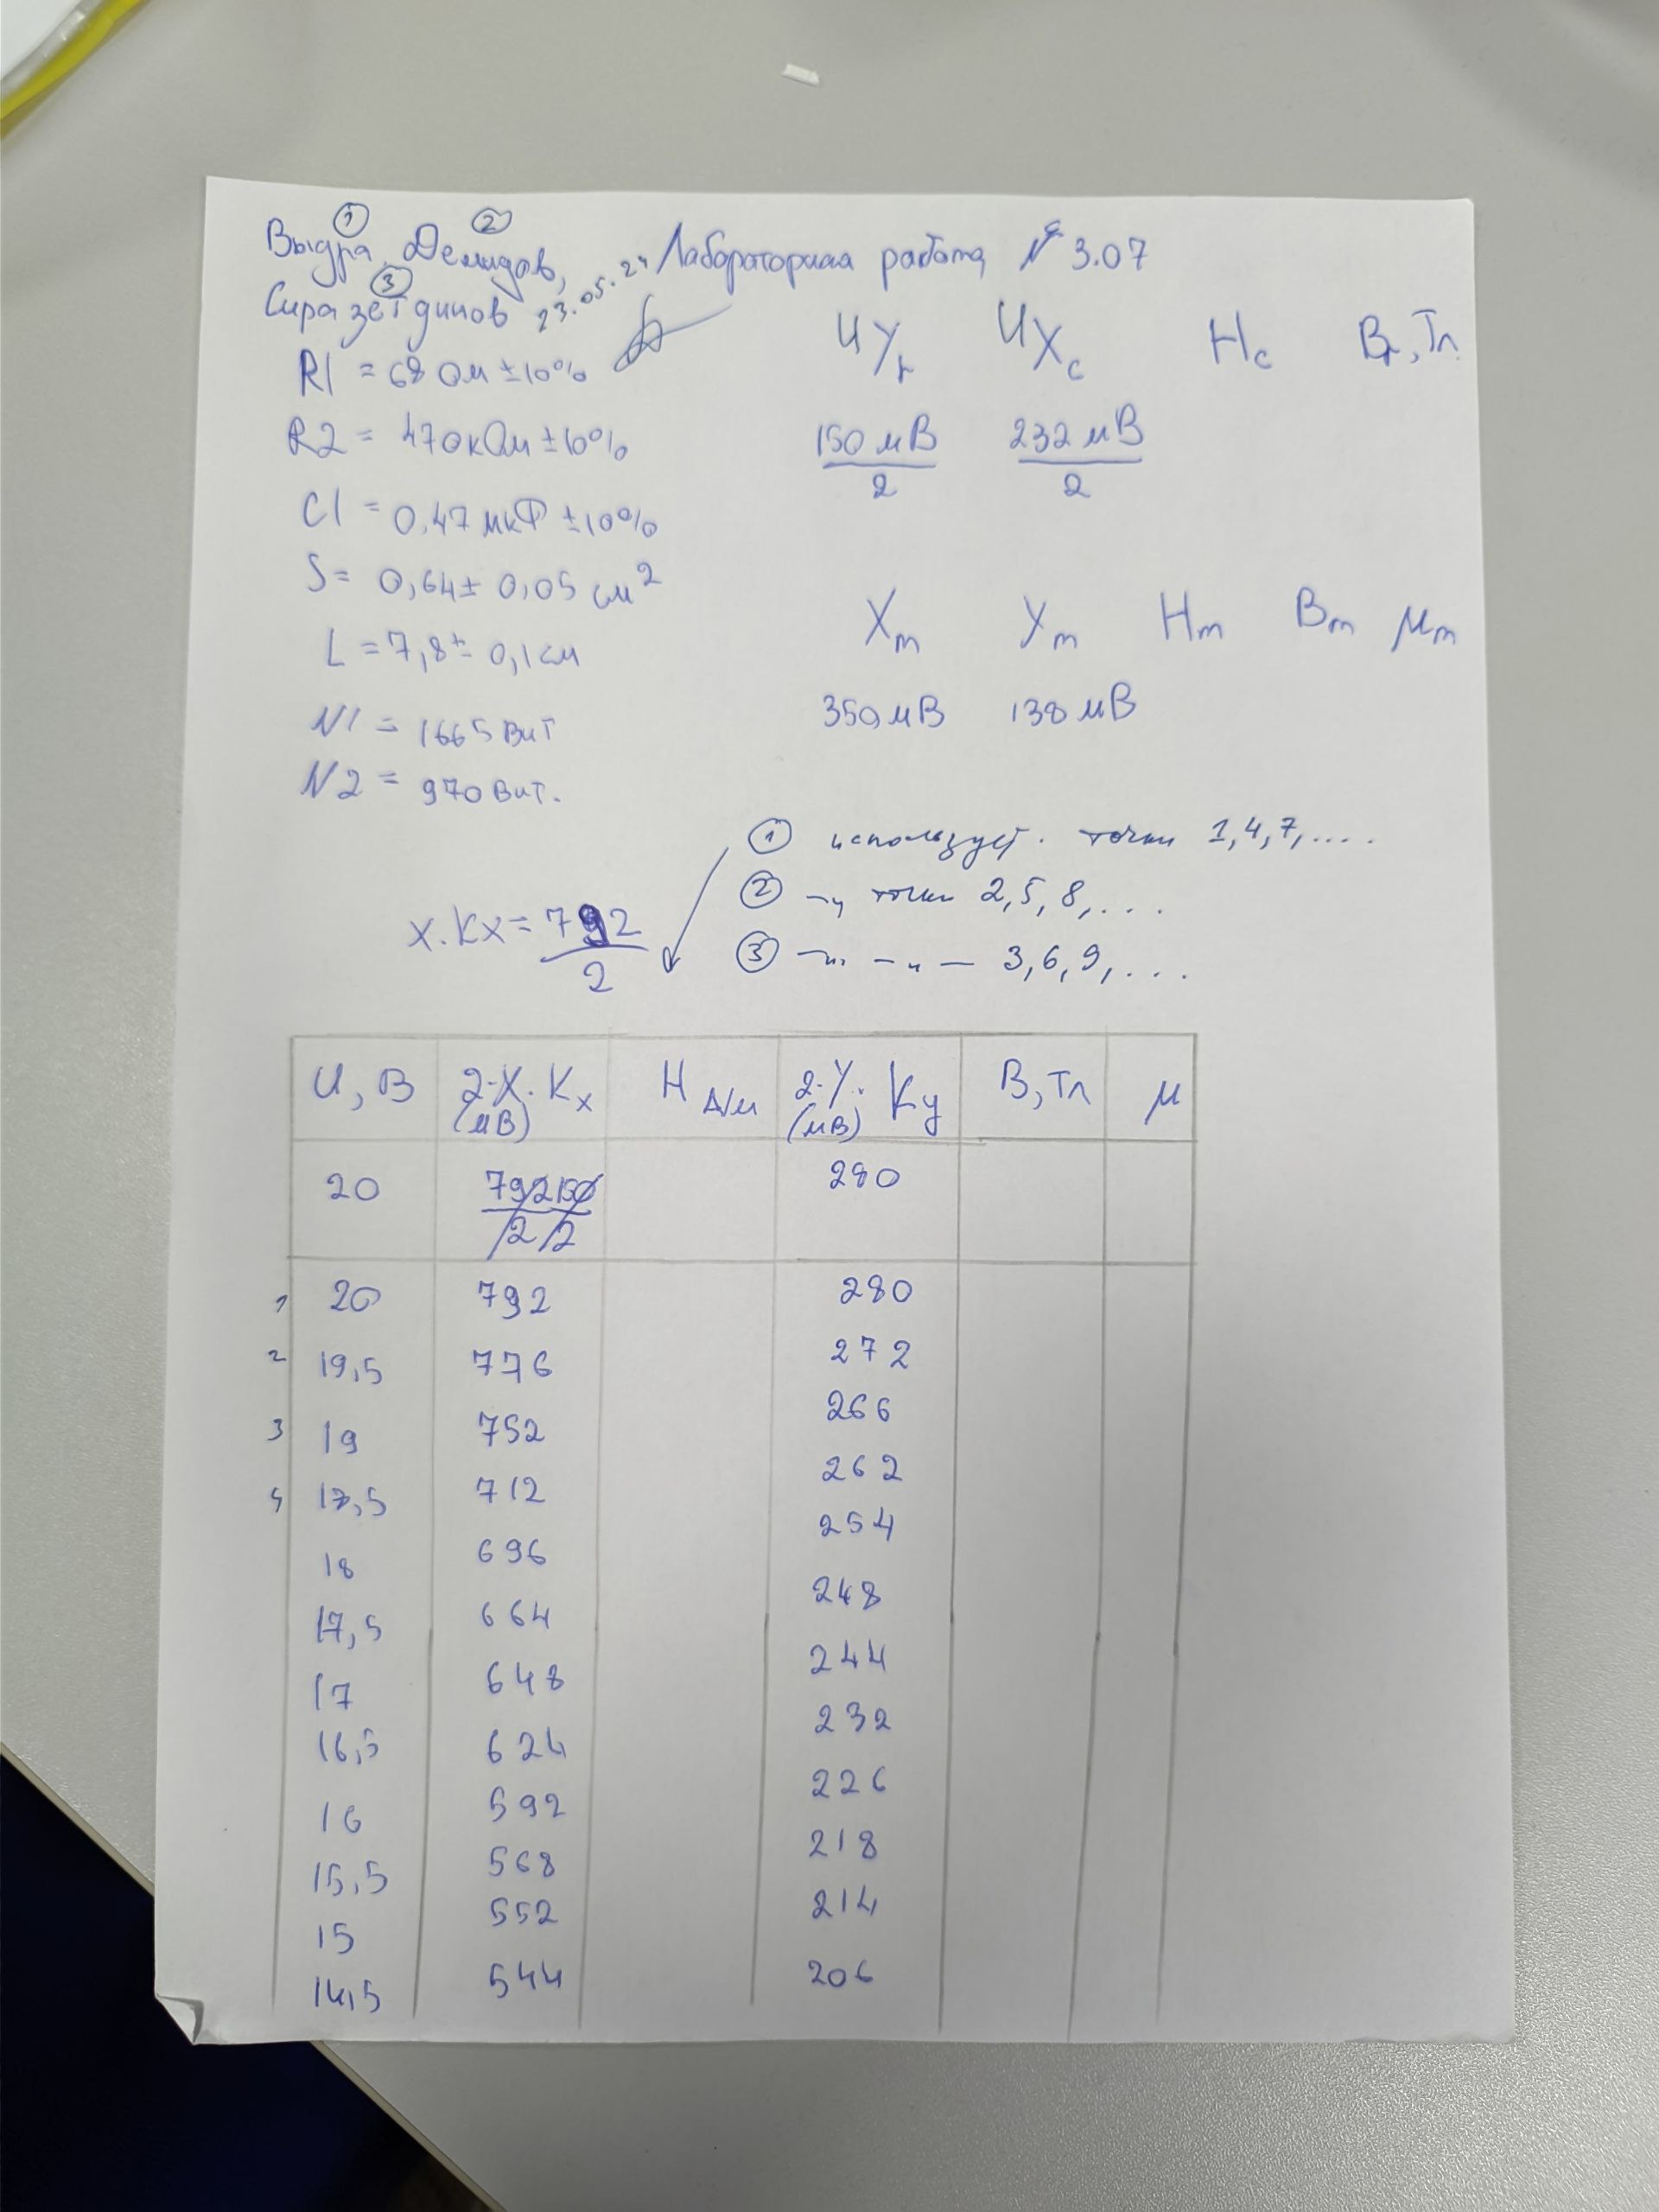 ① ②
Выдра, Демидов, Лабораторная работа № 3.07
③
Сиразетдинов 23.05.24
R1 = 68 Ом ± 10%
R2 = 470 кОм ± 10%
C1 = 0,47 мкФ ± 10%
S = 0,64 ± 0,05 см²
L = 7,8 ± 0,1 см
N1 = 1665 Вит
N2 = 970 Вит.
UYr UXc Hc Br, Тл
150 мВ/2 232 мВ/2
Xm Ym Hm Bm μm
350 мВ 138 мВ
① использует. точки 1, 4, 7, ....
② —„ точки 2, 5, 8, ...
③ —„— —„— 3, 6, 9, ...
X·Kx = 792/2
U, В 2·X·Kx (мВ) H А/м 2·Y·Ky (мВ) B, Тл μ
20 792/2 150/2 280
1 20 792 280
2 19,5 776 272
3 19 752 266
4 17,5 712 262
18 696 254
17,5 664 248
17 648 244
16,5 624 232
16 592 226
15,5 568 218
15 552 214
14,5 544 206